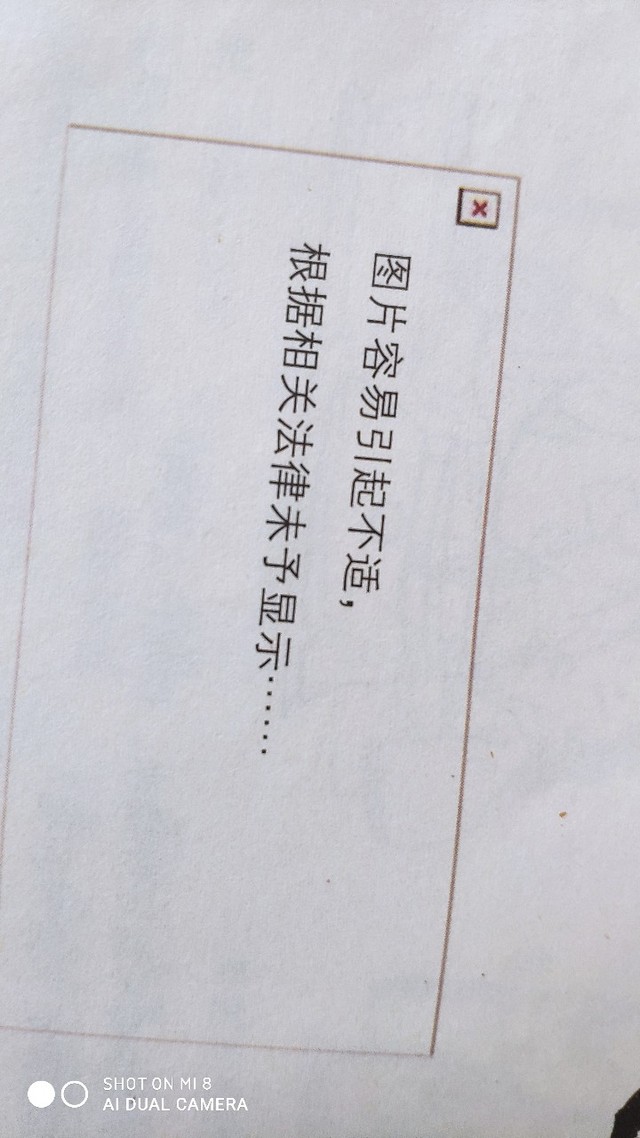 图片容易引起不适，
根据相关法律未予显示……
SHOT ON MI 8
AI DUAL CAMERA